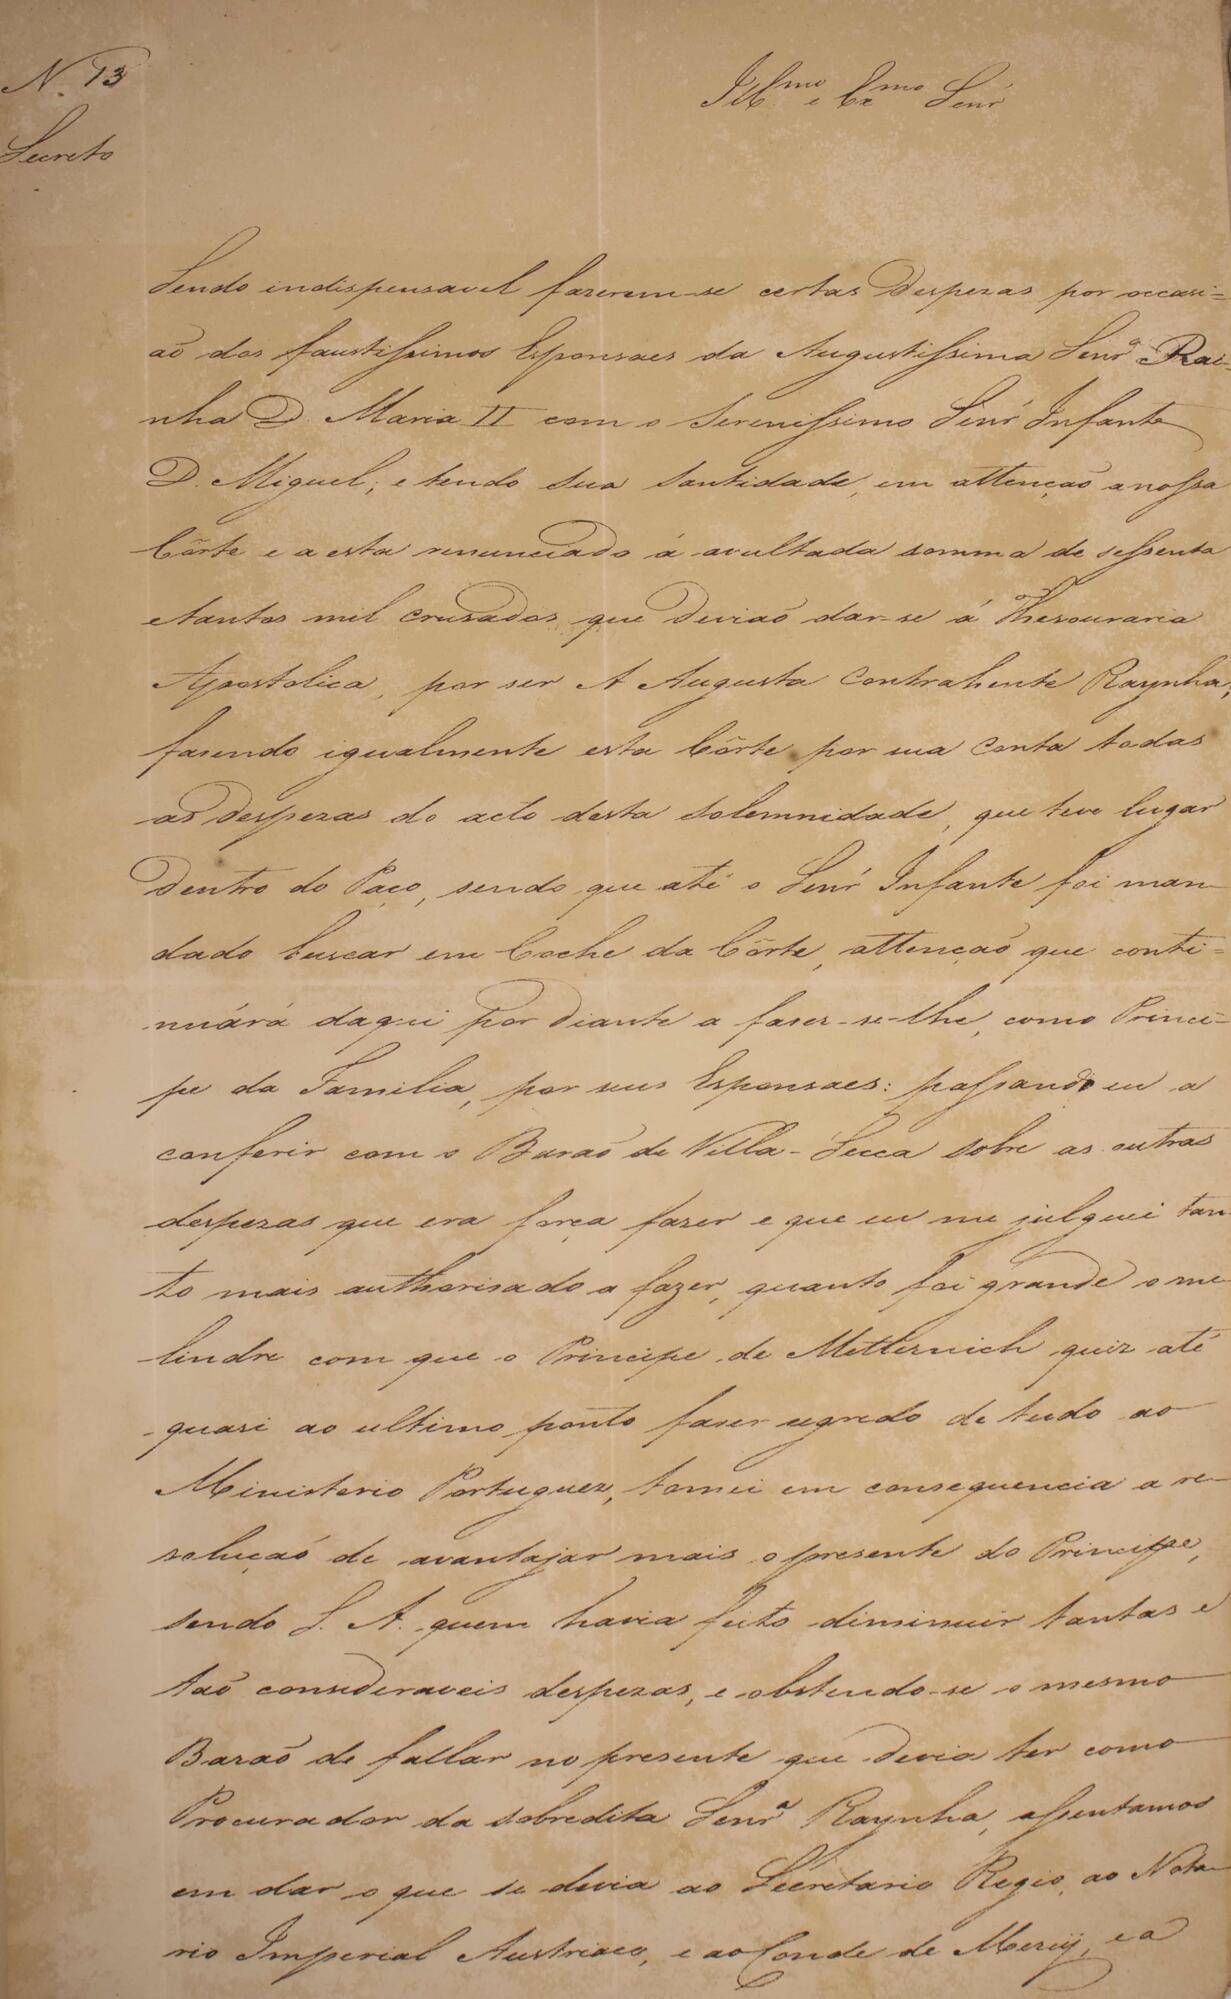 N. 13
Secreto
Ill.mo e Ex.mo Senr
Sendo indispensavel fazerem-se certas Despezas por occasi=
aõ dos faustissimos Esponsaes da Augustissima Senr.a Rai-
nha D. Maria II com o Serenissimo Senr Infante
D. Miguel; e tendo Sua Santidade, em attençaõ a nossa
Côrte e a esta renunciado á avultada somma de sessenta
e tantos mil crusados que Deviaõ dar-se á Thesouraria
Apostolica, por ser A Augusta Contrahente Raynha;
fasendo igualmente esta Côrte por sua conta todas
as Despezas do acto desta Solemnidade, que teve lugar
Dentro do Paço, sendo que até o Senr Infante foi man-
dado buscar em Coche da Côrte, attençaõ que conti=
nuárá daqui por diante a faser-se-lhe, como Princi=
pe da Familia, por seus Esponsaes: passando eu a
conferir com o Baraõ de Villa-Secca sobre as outras
despezas que era força faser e que eu me julguei tan-
to mais authorisado a fazer, quanto foi grande o me-
lindre com que o Principe de Metternich quiz até
quasi ao ultimo ponto faser segredo de tudo ao
Ministerio Portuguez, tomei em consequencia a re-
soluçaõ de avantajar mais o presente do Principe,
sendo S. A. quem havia feito diminuir tantas e
taõ consideraveis despezas, e obstendo-se o mesmo
Baraõ de fallar no presente que devia ter como
Procurador da sobredita Senr.a Raynha, assentamos
em dar o que se devia ao Secretario Regio, ao Nota-
rio Imperial Austriaco, e ao Conde de Mercÿ, e a